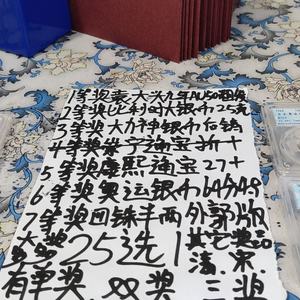 1等奖袁大头九年AU50
2等奖比利时大银币25克
3等奖大力神银币后铸
4等奖崇宁通宝折十
5等奖康熙通宝27+
6等奖奥运银币64分49
7等奖四铢半两外郭版
25选1其它奖品
清.宋.
有单奖.双奖.三奖